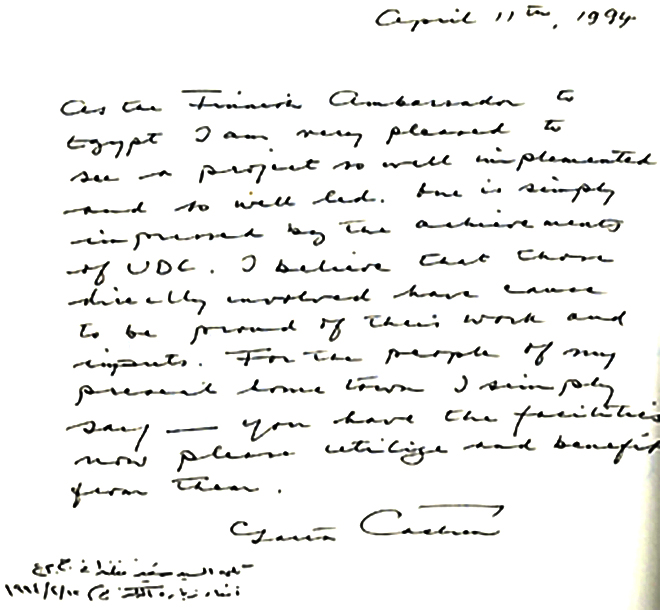 April 11th, 1994
As the Finnish Ambassador to
Egypt I am very pleased to
see a project so well implemented
and so well led. One is simply
impressed by the achievements
of UDC. I believe that those
directly involved have cause
to be proud of their work and
inputs. For the people of my
present home town I simply
say — you have the facilities
now please utilize and benefit
from them.
Castrén
كلمة السيد سفير فنلندا
أثناء زيارة